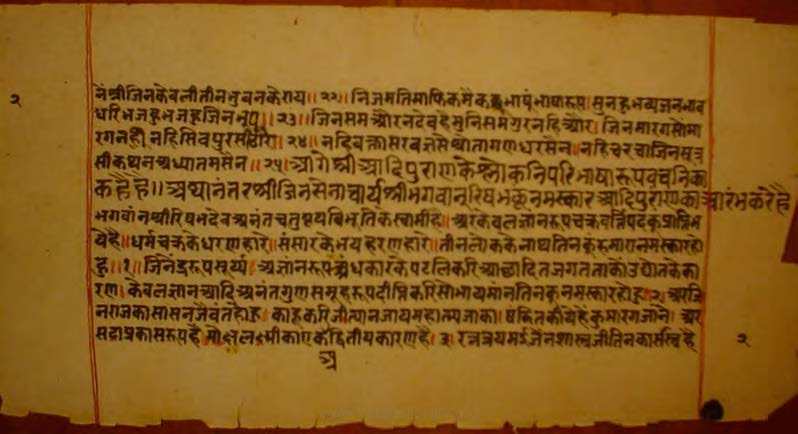 नंश्रीजिनकेवलीतीनभुवनकेराय॥२२॥ निजमतिमाफिकमैकछूभाषंभाषारूप।सुनहुभव्यजनभाव
धरिभजहुभजहुजिनभूप॥२३॥ जिनसमऔरनदेवहैमुनिसमगुरनहिऔर।जिनमारगसोमा
रगनहीनहिसिवपुरसीठौर।२४॥ नहिवक्तासरवज्ञसेश्रोतागणधरसेन।नहिचरचाजिनसूत्र
सीकथनअध्यातमसेन॥२५॥आगेश्रीआदिपुराणकेश्लोकनिपरिभाषारूपवचनिका
कहैहै॥अथानंतरश्रीजिनसेनाचार्यश्रीभगवानरिषभकूनमस्कारआदिपुराणकाआरंभकरेहै
भगवांनश्रीरिषभदेवअनंतचतुष्टयविभूतिकेस्वामीहै।अरकेवलज्ञानरूपचक्रवर्त्तिपदकूप्राप्तिभ
येहै॥धर्मचक्रकेधरणहारे।संसारकेभयहरणहारे।तीनलोककेनाथतिनकूहमारानमस्कारहो
हु॥१॥जिनेंद्ररूपसूर्य्यअज्ञानरूपअंधकारकेपटलिकरिआछादितजगतताकोउद्योतकेका
रण।केवलज्ञानआदिअनंतगुणसमूहरूपदीप्तिकरिसोभायमानतिनकूनमस्कारहोहु२।अरजि
नराजकासासनजैवंतहोहु।काहूकरिजीत्यानजायमहात्मजाका।षंडितकीयेहैकुमारगजाने।अर
सदाप्रकासरूपहै।मोक्षलक्ष्मीकाएकद्वितीयकारणहै।३।रत्नत्रयमईजैनशास्त्रजीतिनकासर्वस्वहै
२
२
अ